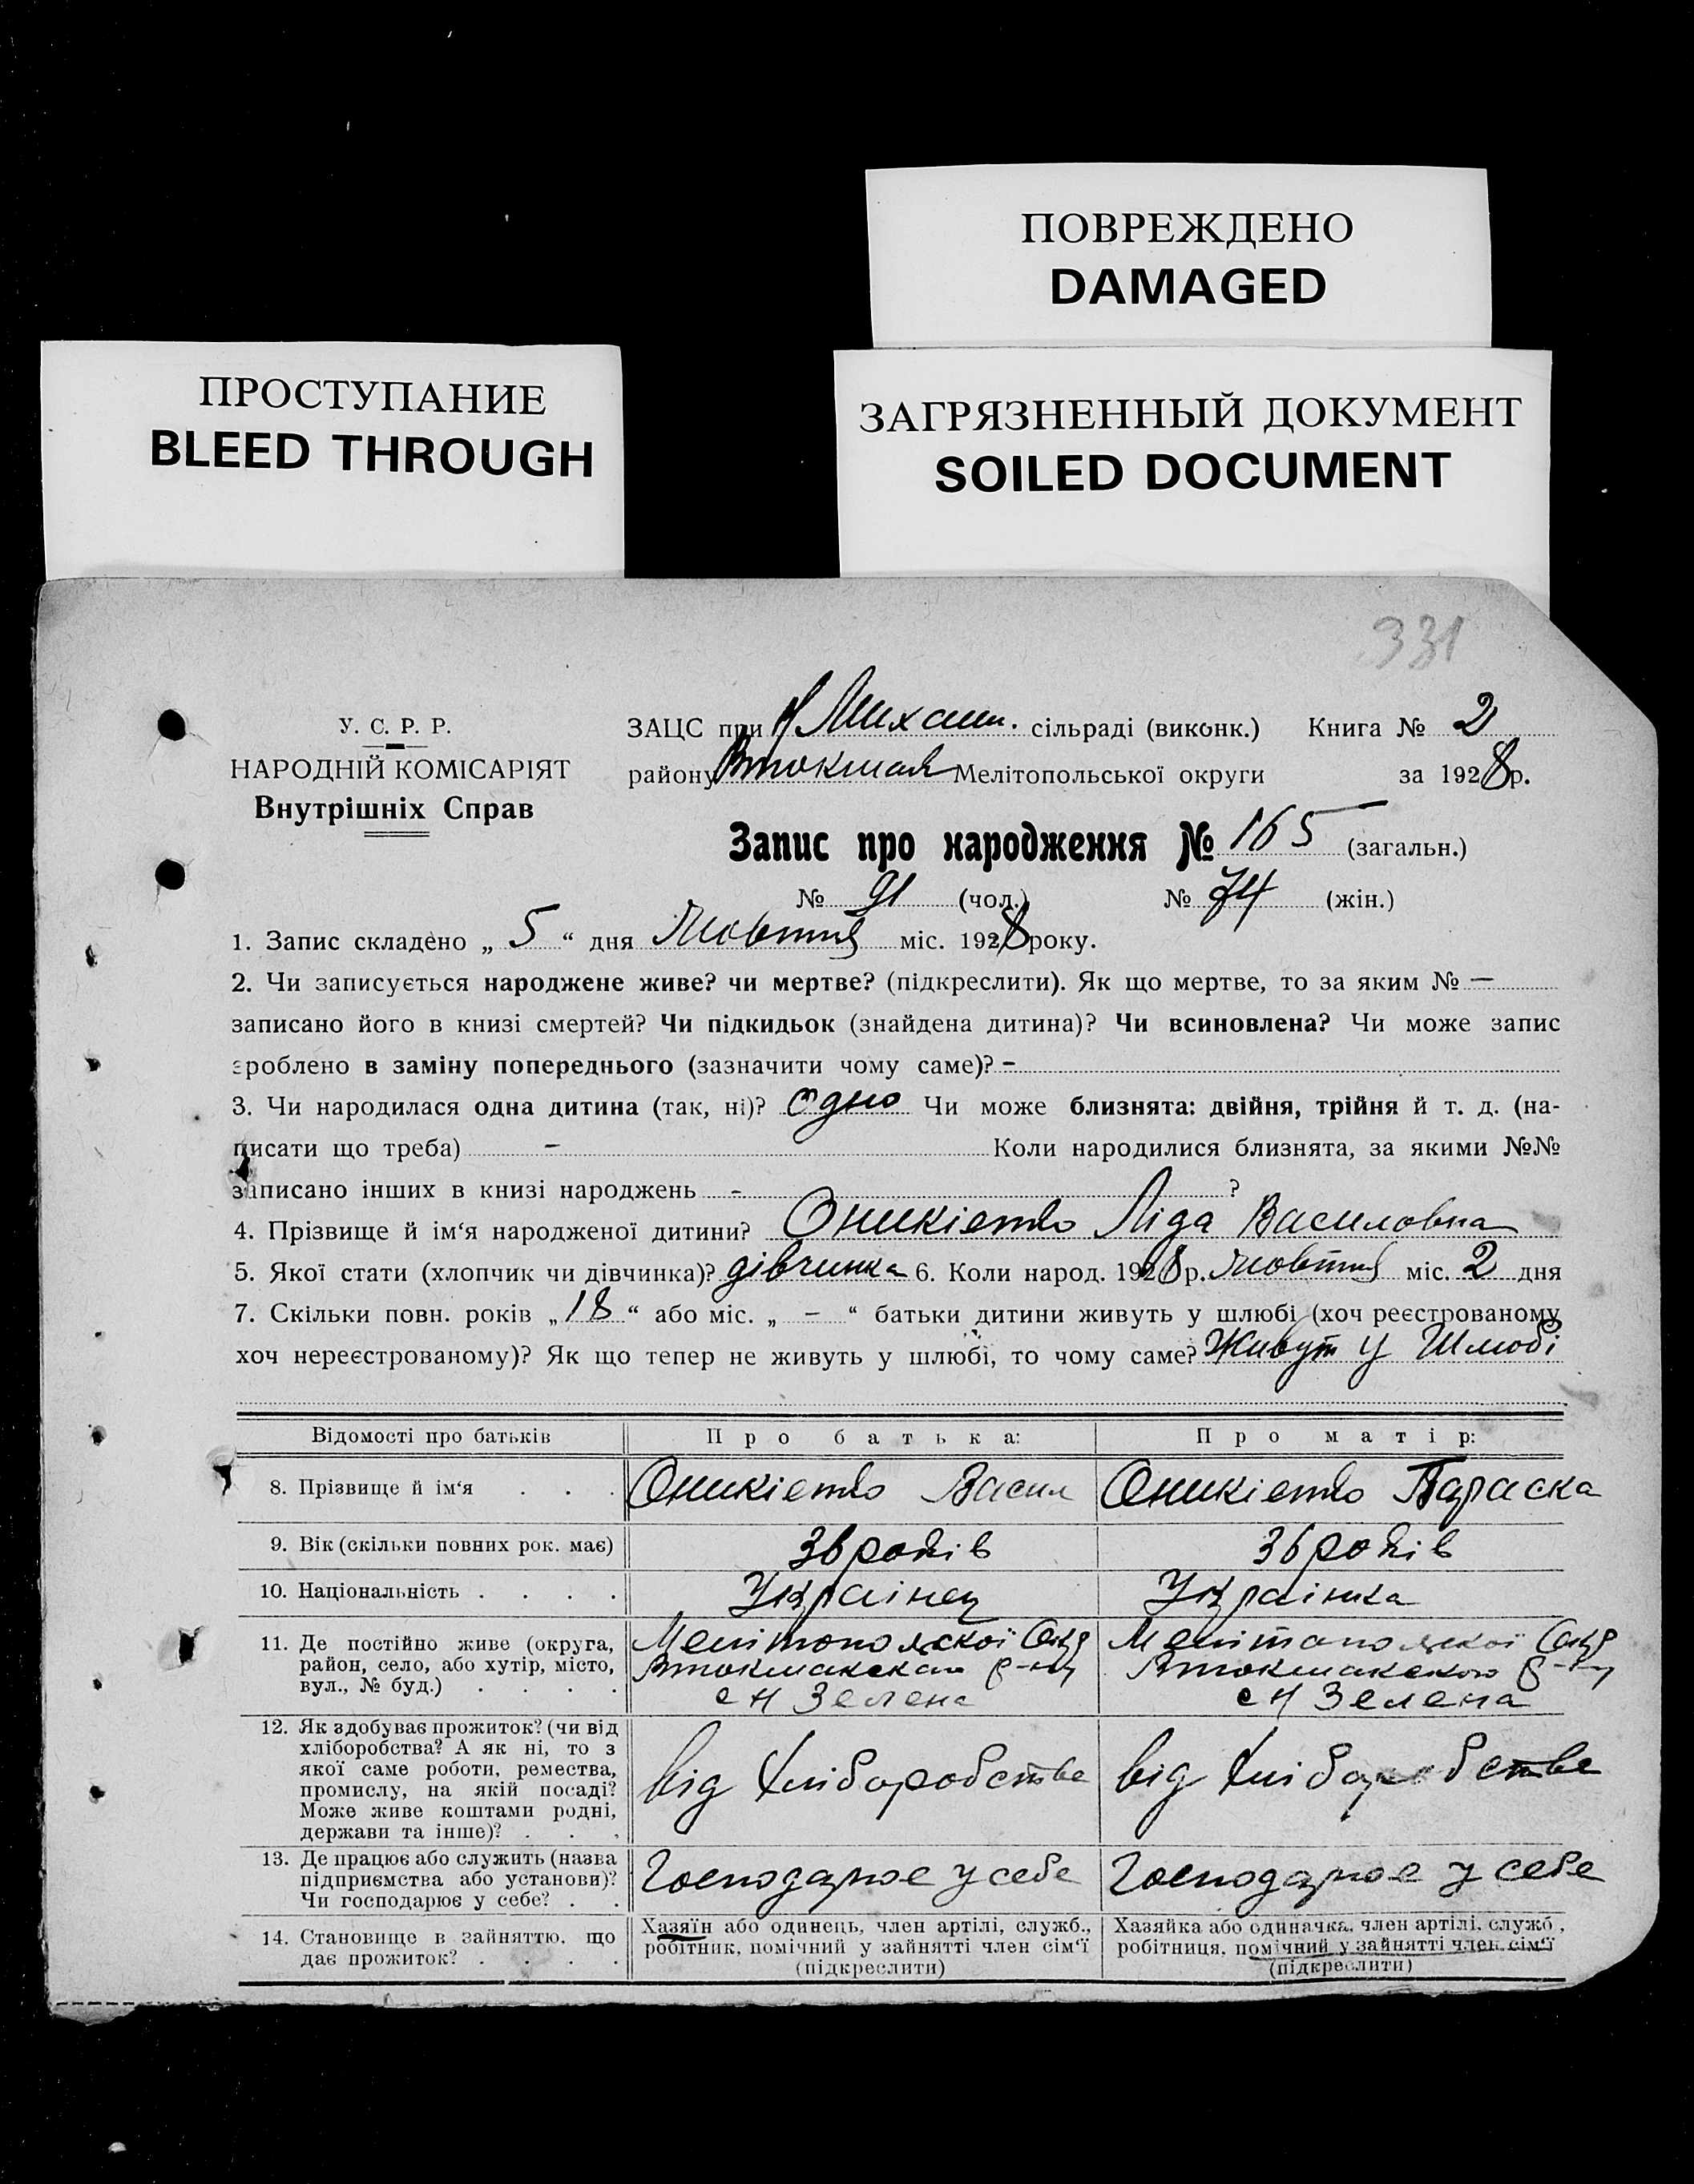 ПОВРЕЖДЕНО
DAMAGED
ПРОСТУПАНИЕ
BLEED THROUGH
ЗАГРЯЗНЕННЫЙ ДОКУМЕНТ
SOILED DOCUMENT
331
У. С. Р. Р.
НАРОДНІЙ КОМІСАРІЯТ
Внутрішніх Справ
ЗАЦС при Н Михайл. сільраді (виконк.) Книга № 2
району Втокмак Мелітопольської округи за 1928 р.
Запис про народження № 165 (загальн.)
№ 91 (чол.) № 74 (жін.)
1. Запис складено „ 5 “ дня Жовтня міс. 1928 року.
2. Чи записується народжене живе? чи мертве? (підкреслити). Як що мертве, то за яким № —
записано його в книзі смертей? Чи підкидьок (знайдена дитина)? Чи всиновлена? Чи може запис
зроблено в заміну попереднього (зазначити чому саме)? –
3. Чи народилася одна дитина (так, ні)? одно Чи може близнята: двійня, трійня й т. д. (на-
писати що треба) – Коли народилися близнята, за якими №№
записано інших в книзі народжень – ?
4. Прізвище й ім‘я народженої дитини? Оникієнко Ліда Василовна
5. Якої стати (хлопчик чи дівчинка)? дівчинка 6. Коли народ. 1928 р. Жовтня міс. 2 дня
7. Скільки повн. років „ 18 “ або міс. „ – “ батьки дитини живуть у шлюбі (хоч реєстрованому
хоч нереєстрованому)? Як що тепер не живуть у шлюбі, то чому саме? Живут у Шлюбі
Відомості про батьків Про батька: Про матір:
8. Прізвище й ім‘я . . . Оникієнко Васил Оникієнко Параска
9. Вік (скільки повних рок. має) 36 років 36 років
10. Національність . . . . Українец Українка
11. Де постійно живе (округа,
район, село, або хутір, місто,
вул., № буд.) . . . .
Мелітопольскої Окр
Втокмакскам р-ну
с Н Зелена
Мелітопольскої Окр
Втокмакского р-ну
с Н Зелена
12. Як здобуває прожиток? (чи від
хліборобства? А як ні, то з
якої саме роботи, ремества,
промислу, на якій посаді?
Може живе коштами родні,
держави та інше)? . . .
від Хліборобства від Хліборобства
13. Де працює або служить (назва
підприємства або установи)?
Чи господарює у себе? . .
Господарює у себе Господарює у себе
14. Становище в зайняттю, що
дає прожиток? . . . .
Хазяїн або одинець, член артілі, служб.,
робітник, помічний у зайнятті член сім‘ї
(підкреслити)
Хазяйка або одиначка, член артілі, служб.,
робітниця, помічний у зайнятті член сім‘ї
(підкреслити)